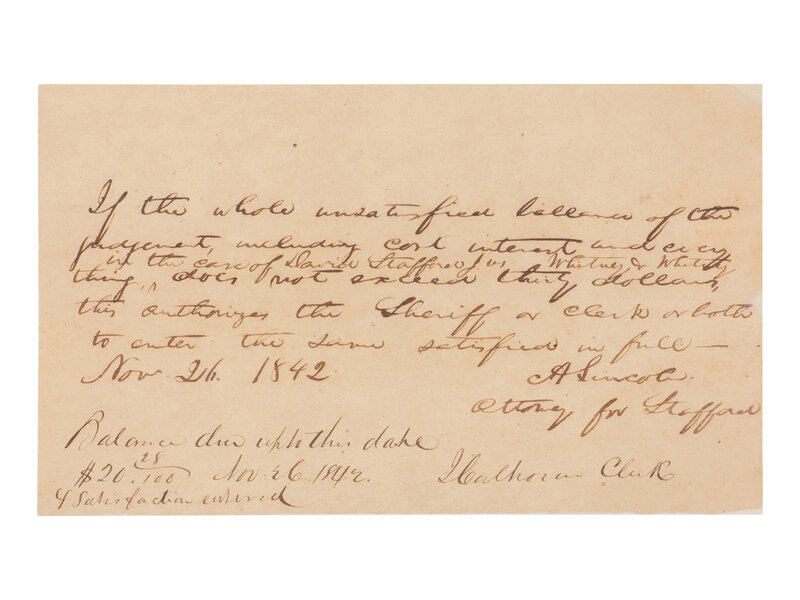 If the whole unsatisfied ballance of the
judgement, including cost interest and every
in the case of David Stafford Jr vs Whitney & Whitney
thing, does not exceed thirty dollars,
this authorizes the Sheriff or clerk or both
to enter the same satisfied in full —
Nov. 26. 1842.
A Lincoln.
Attorney for Stafford
Balance due up to this date
$20. 28/100 Nov. 26 1842.
J Calhoun Clerk
& Satisfaction entered